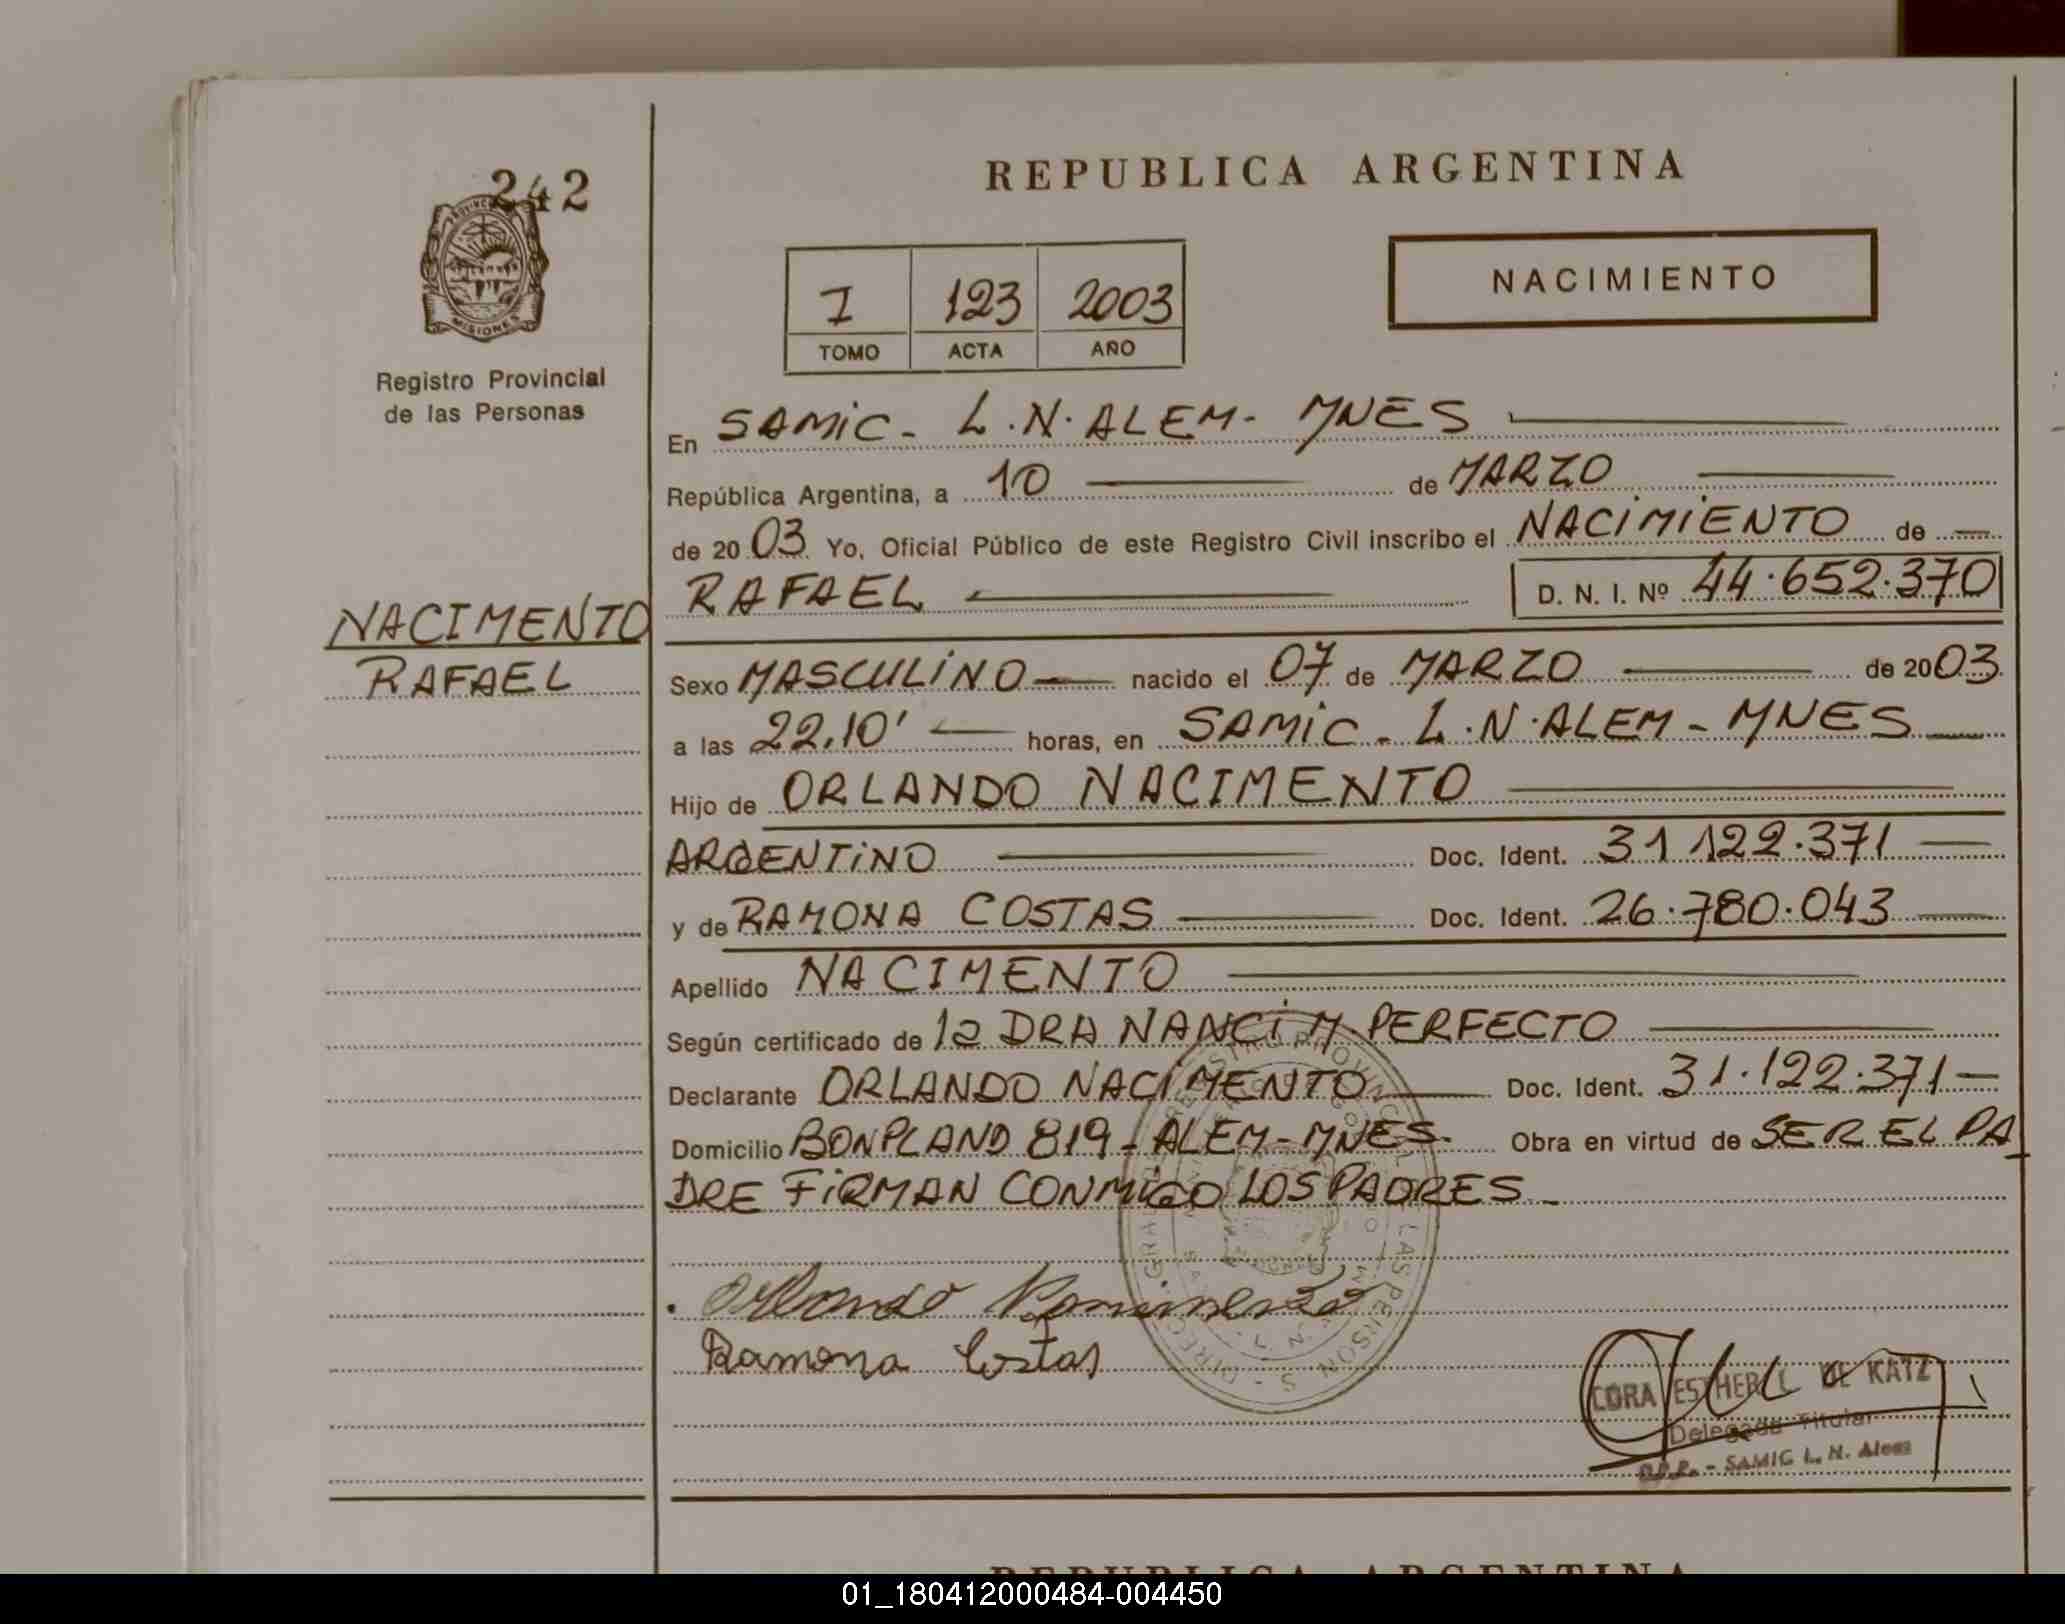 242
PROVINCIA
MISIONES
Registro Provincial
de las Personas
NACIMENTO
RAFAEL
REPUBLICA ARGENTINA
I 123 2003
TOMO ACTA AÑO
NACIMIENTO
En SAMiC - L.N. ALEM - MNES
República Argentina, a 10 de MARZO
de 2003 Yo, Oficial Público de este Registro Civil inscribo el NACIMIENTO de
RAFAEL D. N. I. Nº 44.652.370
Sexo MASCULINO nacido el 07 de MARZO de 2003
a las 22,10' horas, en SAMiC - L.N. ALEM - MNES
Hijo de ORLANDO NACIMENTO
ARGENTINO Doc. Ident. 31 122.371
y de RAMONA COSTAS Doc. Ident. 26.780.043
Apellido NACIMENTO
Según certificado de la DRA NANCI M PERFECTO
Declarante ORLANDO NACIMENTO Doc. Ident. 31.122.371
Domicilio BONPLAND 819 - ALEM - MNES. Obra en virtud de SER EL PA
DRE FIRMAN CONMIGO LOS PADRES
Orlando Nacimento
Ramona Costas
CORA ESTHER DE KATZ
Delegada Titular
SAMIC L. N. Alem
REPUBLICA ARGENTINA
01_180412000484-004450